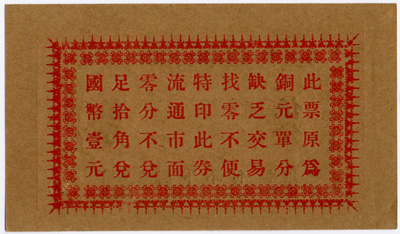 此票原為
銅元單分
缺乏交易
找零不便
特印此券
流通市面
零分不兌
足拾角兌
國幣壹元